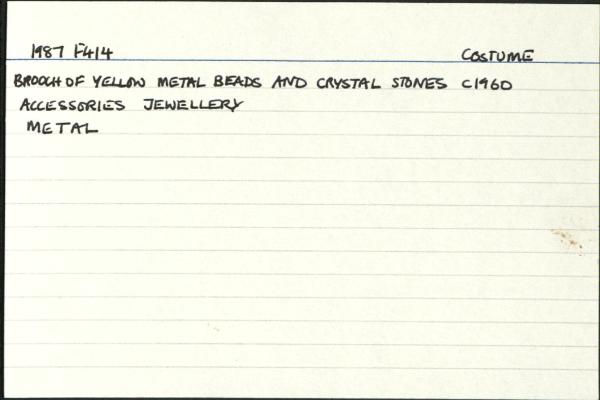 1987 F414 COSTUME
BROOCH OF YELLOW METAL BEADS AND CRYSTAL STONES C1960
ACCESSORIES JEWELLERY
METAL